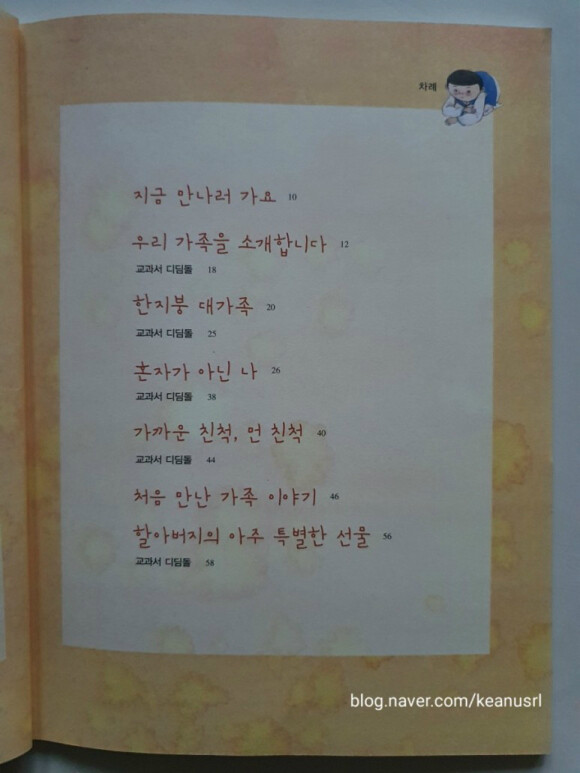 차례
지금 만나러 가요 10
우리 가족을 소개합니다 12
교과서 디딤돌 18
한지붕 대가족 20
교과서 디딤돌 25
혼자가 아닌 나 26
교과서 디딤돌 38
가까운 친척, 먼 친척 40
교과서 디딤돌 44
처음 만난 가족 이야기 46
할아버지의 아주 특별한 선물 56
교과서 디딤돌 58
blog.naver.com/keanusrl